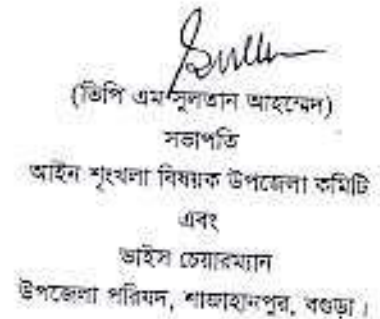 (ভিপি এম সুলতান আহম্মেদ)
সভাপতি
আইন শৃংখলা বিষয়ক উপজেলা কমিটি
এবং
ভাইস চেয়ারম্যান
উপজেলা পরিষদ, শাজাহানপুর, বগুড়া।